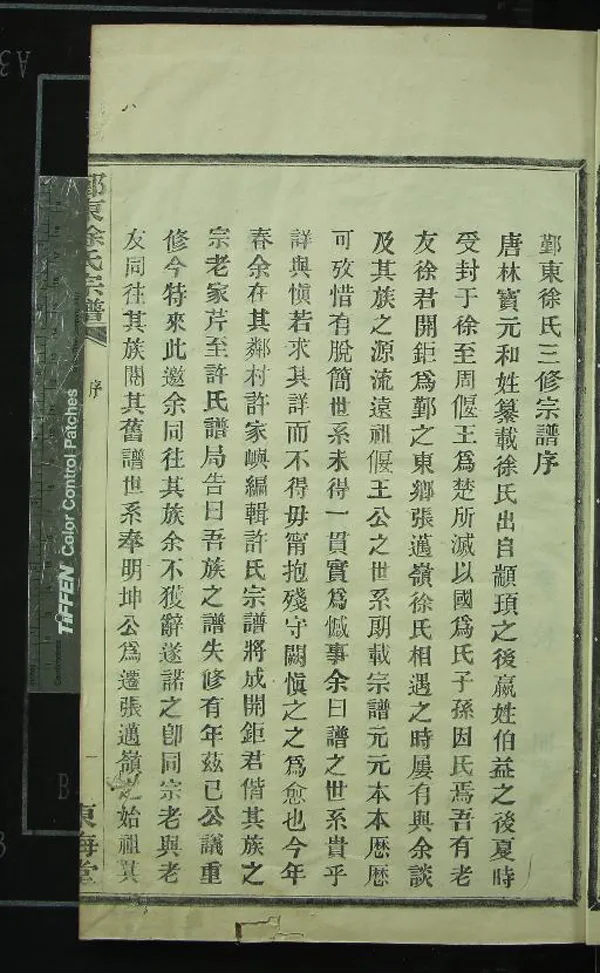 鄞東徐氏三修宗譜序
唐林寶元和姓纂載徐氏出自顓頊之後嬴姓伯益之後夏時
受封于徐至周偃王爲楚所滅以國爲氏子孫因氏焉吾有老
友徐君開鉅爲鄞之東鄉張邁嶺徐氏相遇之時屢有與余談
及其族之源流遠祖偃王公之世系明載宗譜元元本本厯厯
可攷惜有脫簡世系未得一貫實爲憾事余曰譜之世系貴乎
詳與愼若求其詳而不得毋甯抱殘守闕愼之之爲愈也今年
春余在其鄰村許家嶼編輯許氏宗譜將成開鉅君偕其族之
宗老家芹至許氏譜局告曰吾族之譜失修有年茲已公議重
修今特來此邀余同往其族余不獲辭遂諾之卽同宗老與老
友同往其族閱其舊譜世系奉明坤公爲遷張邁嶺之始祖其
鄞東徐氏宗譜
序
一
東海堂
TIFFEN Color Control Patches